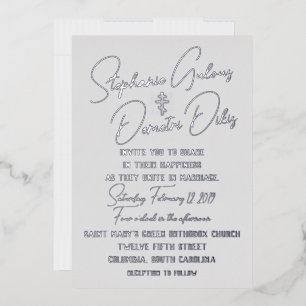 Stephanie Gulous
Demetri Dikis
INVITE YOU TO SHARE
IN THEIR HAPPINESS
AS THEY UNITE IN MARRIAGE.
Saturday February 12, 2019
Four o'clock in the afternoon
SAINT MARY'S GREEK ORTHODOX CHURCH
TWELVE FIFTH STREET
COLUMBIA, SOUTH CAROLINA
RECEPTION TO FOLLOW